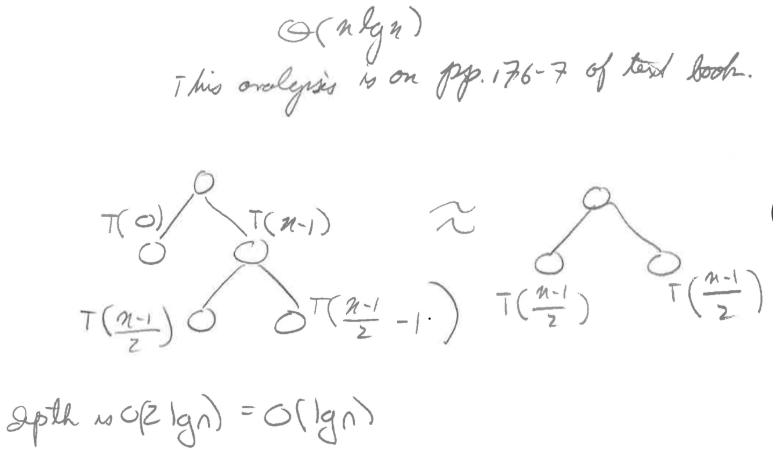 Θ(n lg n)
This analysis is on pp. 176-7 of text book.
T(0) T(n-1) ≈
T(n-1/2) T(n-1/2 -1) T(n-1/2) T(n-1/2)
depth is O(2 lg n) = O(lg n)